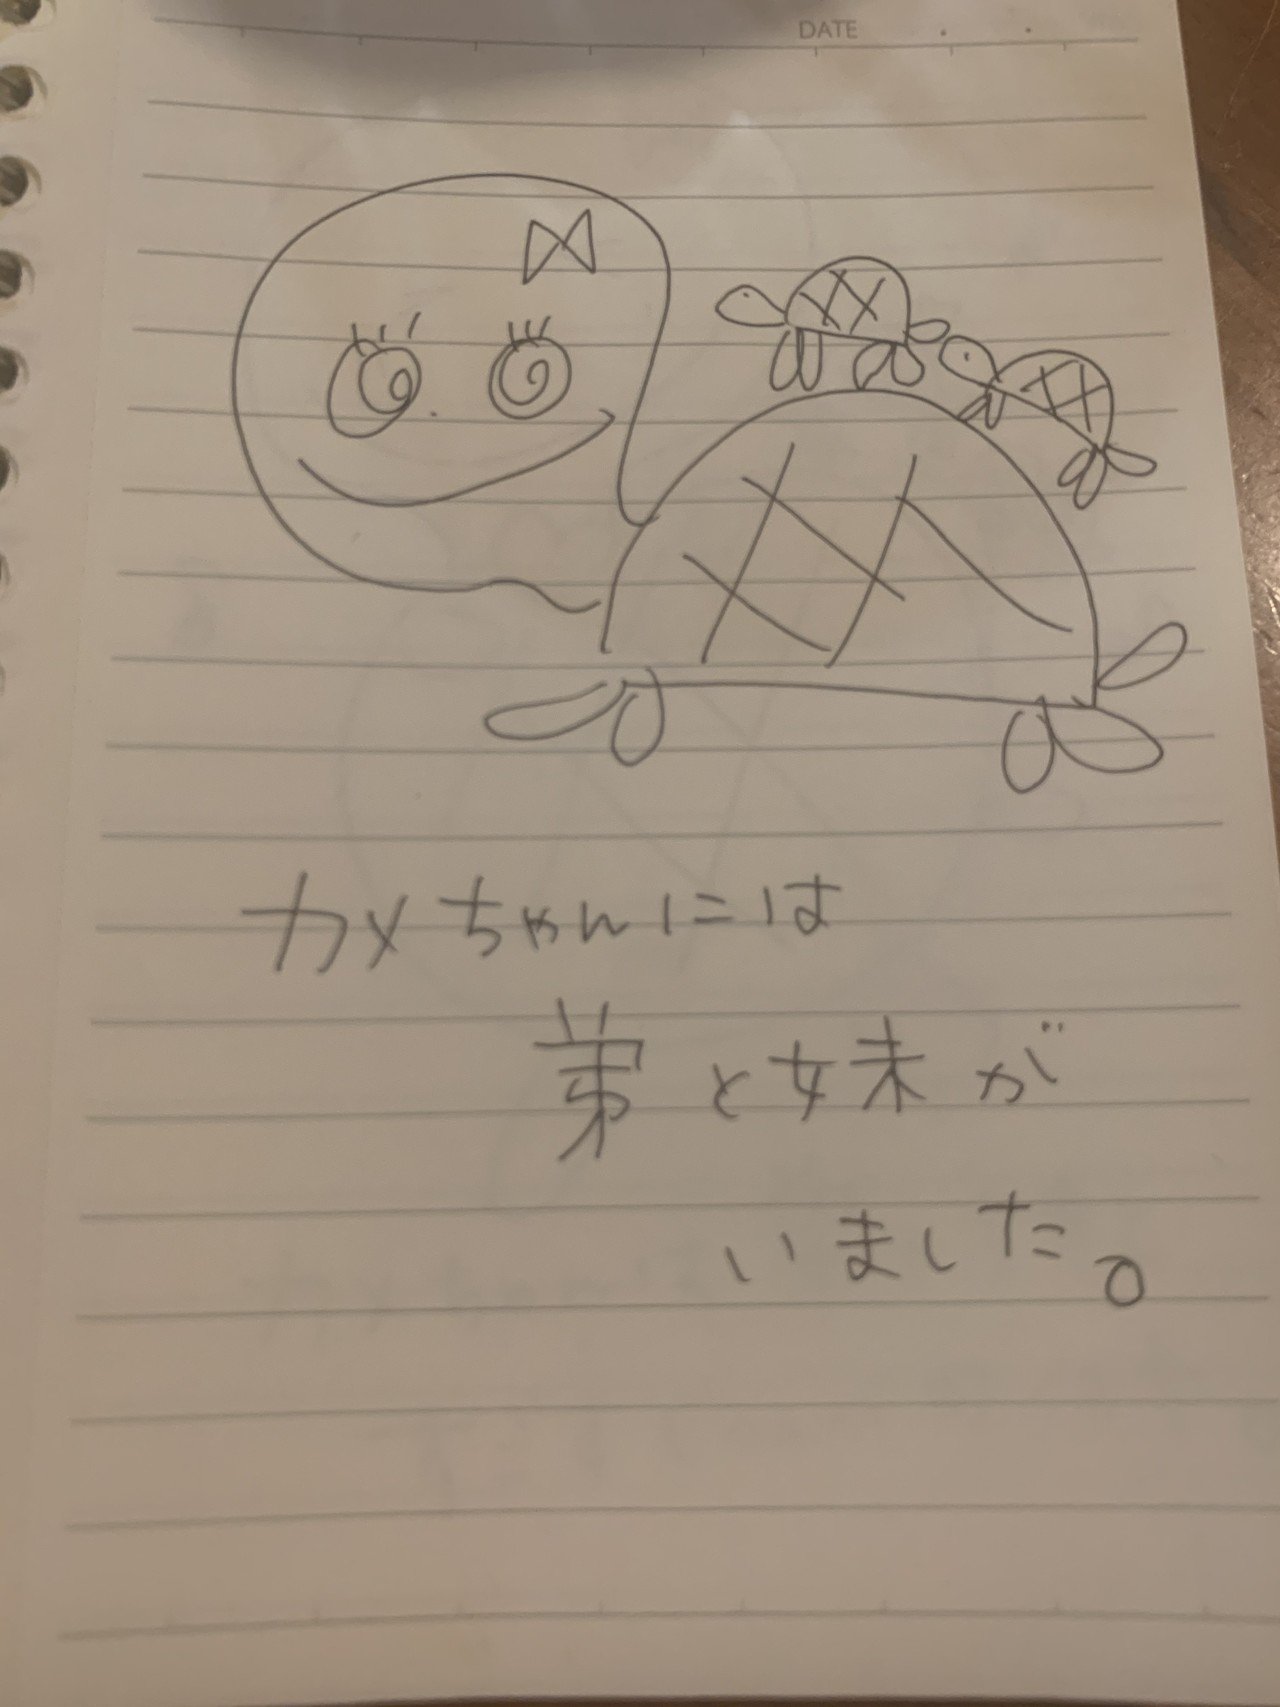 DATE
カメちゃんには
弟と妹が
いました。